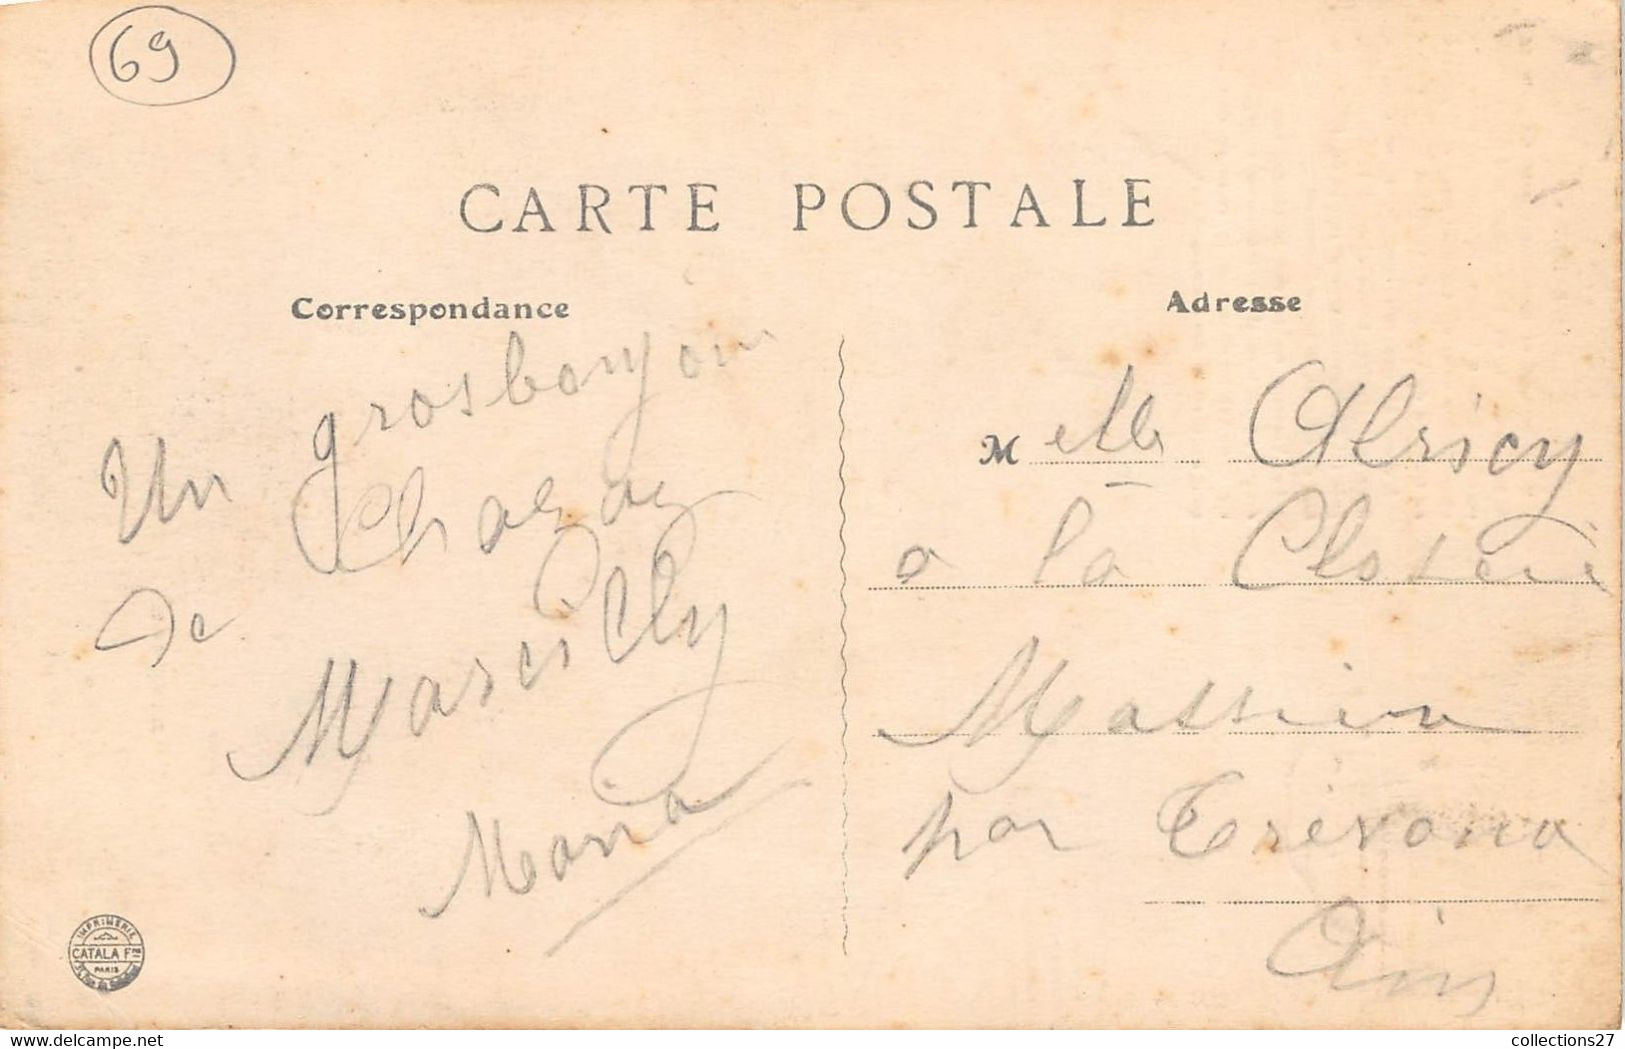 69
CARTE POSTALE
Correspondance
Un gros bonjour
de Chazay
Marcilly
Maria
Adresse
Melle Alricy
a la Closerie
Massieux
par Trévoux
Ain
IMPRIMERIE
CATALA Fres
PARIS
collections27